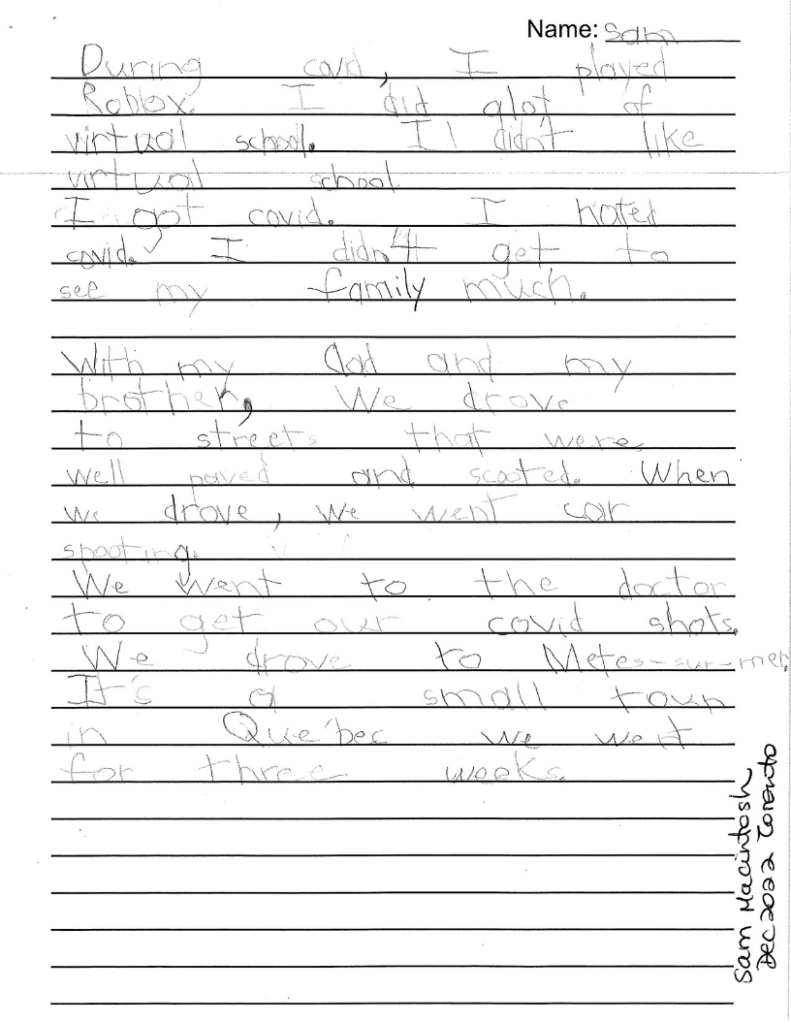 Name: Sam
During covid, I played
Roblox. I did alot of
virtual school. I didn't like
virtual school.
I got covid. I hated
covid. I didn't get to
see my family much.
With my dad and my
brother, We drove
to streets that were
well paved and scooted. When
we drove, we went car
spooting.
We went to the doctor
to get our covid shots.
We drove to Metes-sur-mer.
It's a small toun
in Québec we went
for three weeks.
Sam Macintosh
Dec 2022 Toronto